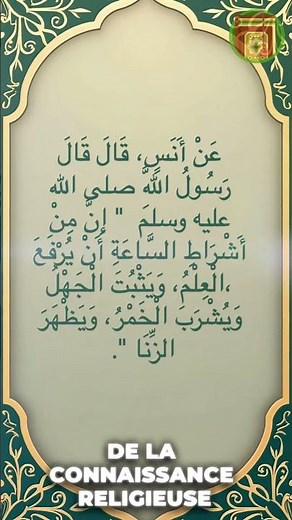 عَنْ أَنَسٍ، قَالَ قَالَ
رَسُولُ اللَّهِ صلى الله
عليه وسلم " إِنَّ مِنْ
أَشْرَاطِ السَّاعَةِ أَنْ يُرْفَعَ
،الْعِلْمُ، وَيَثْبُتَ الْجَهْلُ
وَيُشْرَبَ الْخَمْرُ، وَيَظْهَرَ
الزِّنَا ".
DE LA
CONNAISSANCE
RELIGIEUSE